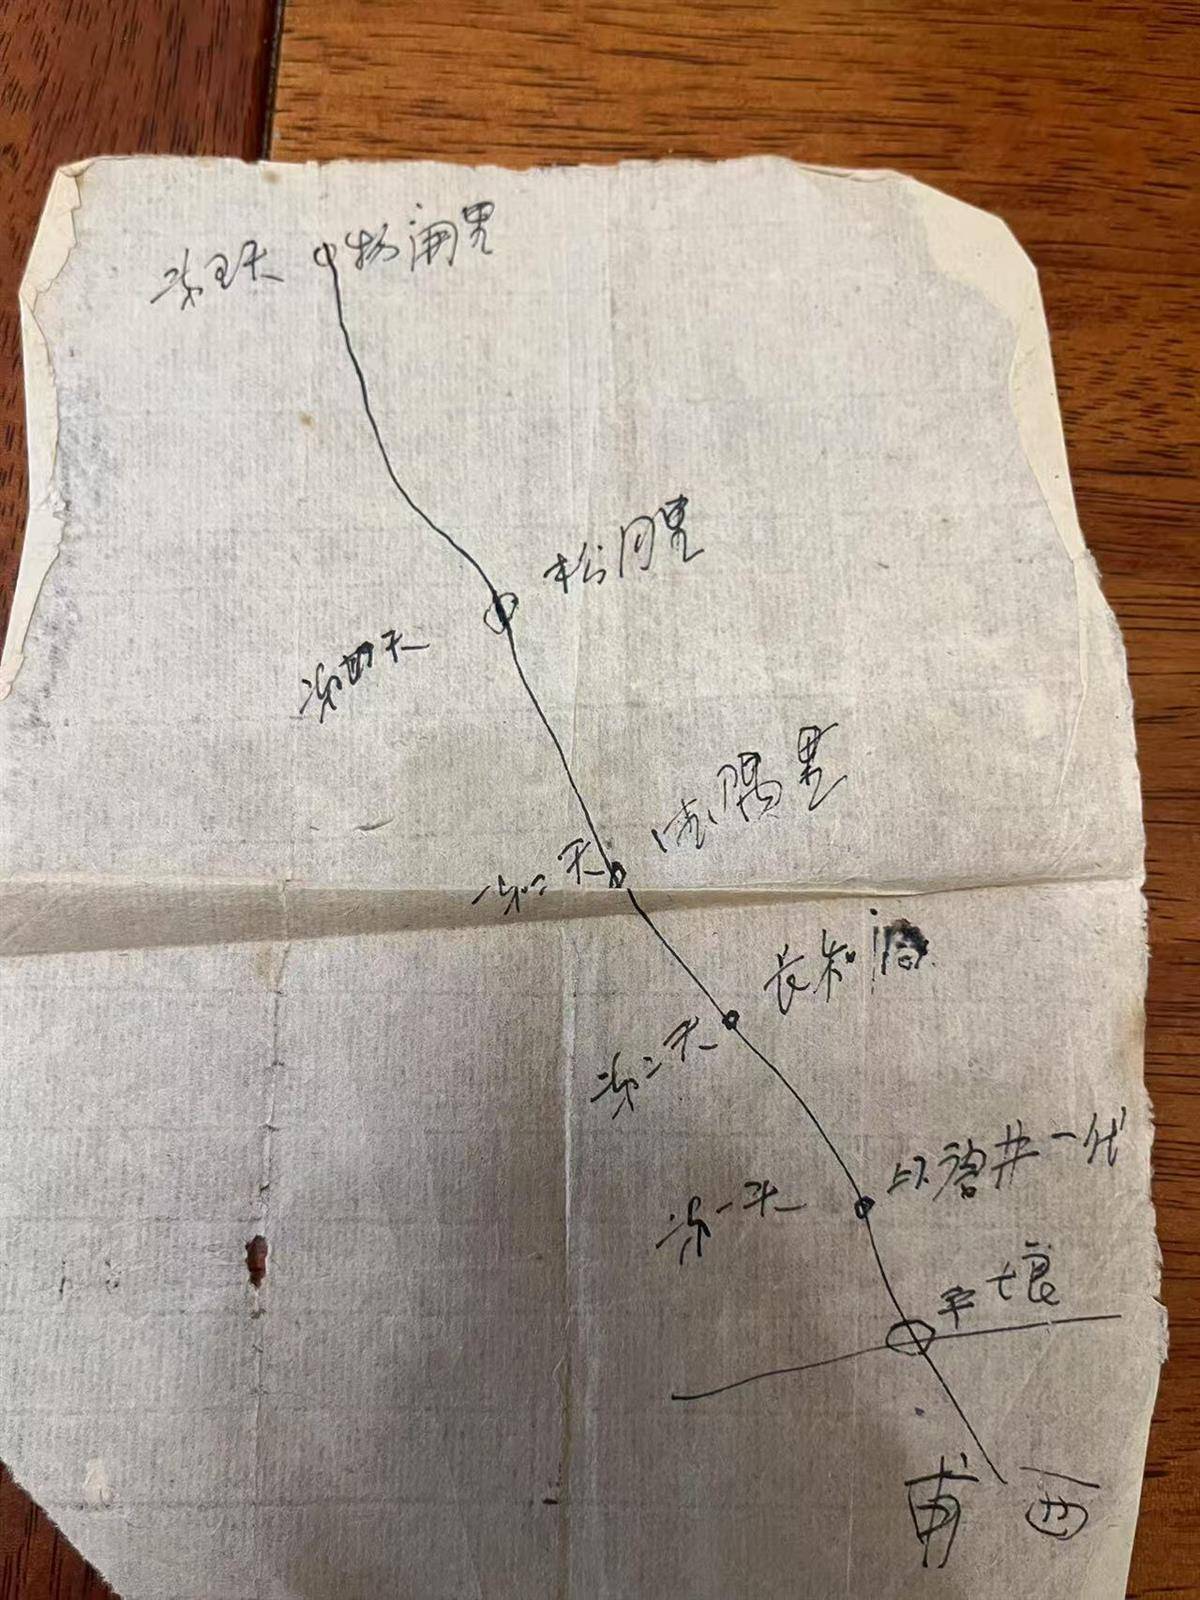 第五天 杨浦里
松同里
第四天
隅里
第三天
长和洞
第二天
井一代
第一天
平壤
甫西